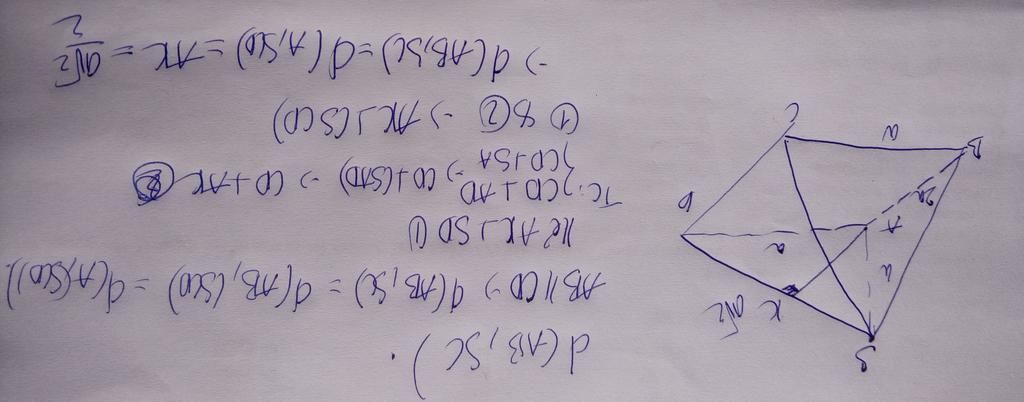 d(AB, SC)
AB // CD → d(AB, SC) = d(AB, (SCD)) = d(A, (SCD))
Kẻ AK ⊥ SD ①
Tc: } CD ⊥ AD
} CD ⊥ SA → CD ⊥ (SAD) → CD ⊥ AK ②
① & ② → AK ⊥ (SCD)
→ d(AB, SC) = d(A, SCD) = AK = a√2/2
S
K
a√2
a
A
a
2a
D
B
a
C